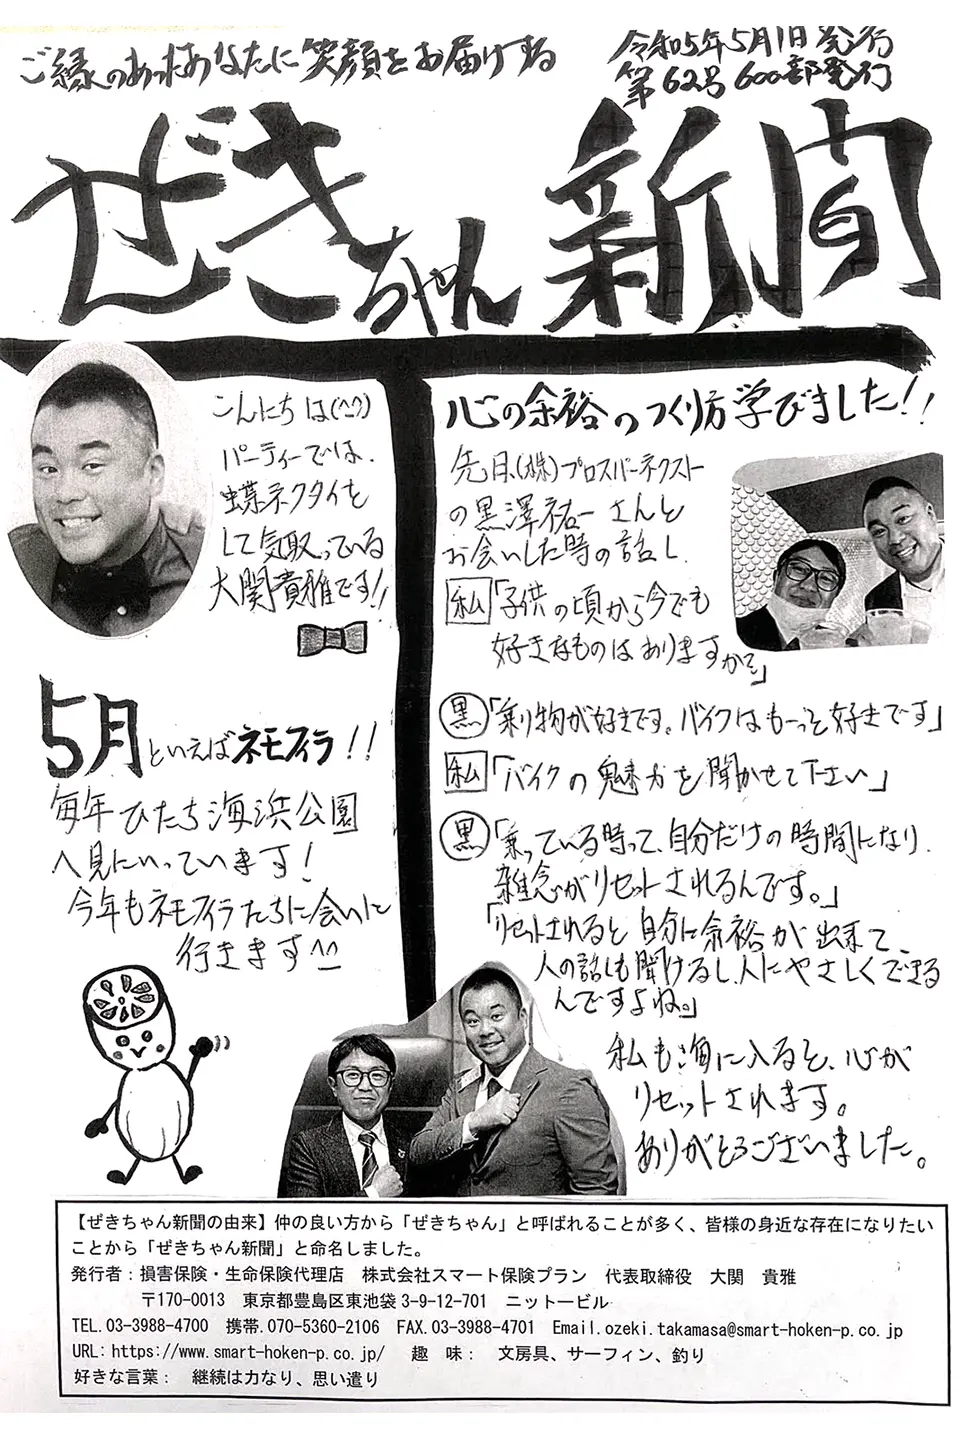 ご縁のあったあなたに笑顔をお届けする
令和5年5月1日発行
第62号600部発行
ぜきちゃん新聞
こんにちは(^^)
パーティーでは、
蝶ネクタイを
して気取っている
大関貴雅です!!
5月といえばネモフィラ!!
毎年ひたち海浜公園
へ見にいっています!
今年もネモフィラたちに会いに
行きます^^
心の余裕のつくり方学びました!!
先日、(株)プロスパーネクスト
の黒澤祐一さんと
お会いした時の話し
私「子供の頃から今でも
好きなものはありますか?」
黒「乗り物が好きです。バイクはもーっと好きです」
私「バイクの魅力を聞かせて下さい」
黒「乗っている時って、自分だけの時間になり、
雑念がリセットされるんです。」
「リセットされると自分に余裕が出来て、
人の話しも聞けるし、人にやさしくできる
んですよね。」
私も海に入ると、心が
リセットされます。
ありがとうございました。
【ぜきちゃん新聞の由来】仲の良い方から「ぜきちゃん」と呼ばれることが多く、皆様の身近な存在になりたい
ことから「ぜきちゃん新聞」と命名しました。
発行者：損害保険・生命保険代理店　株式会社スマート保険プラン　代表取締役　大関　貴雅
〒170-0013　東京都豊島区東池袋3-9-12-701　ニットービル
TEL.03-3988-4700　携帯.070-5360-2106　FAX.03-3988-4701　Email.ozeki.takamasa@smart-hoken-p.co.jp
URL：https://www.smart-hoken-p.co.jp/　趣　味：　文房具、サーフィン、釣り
好きな言葉：　継続は力なり、思い遣り